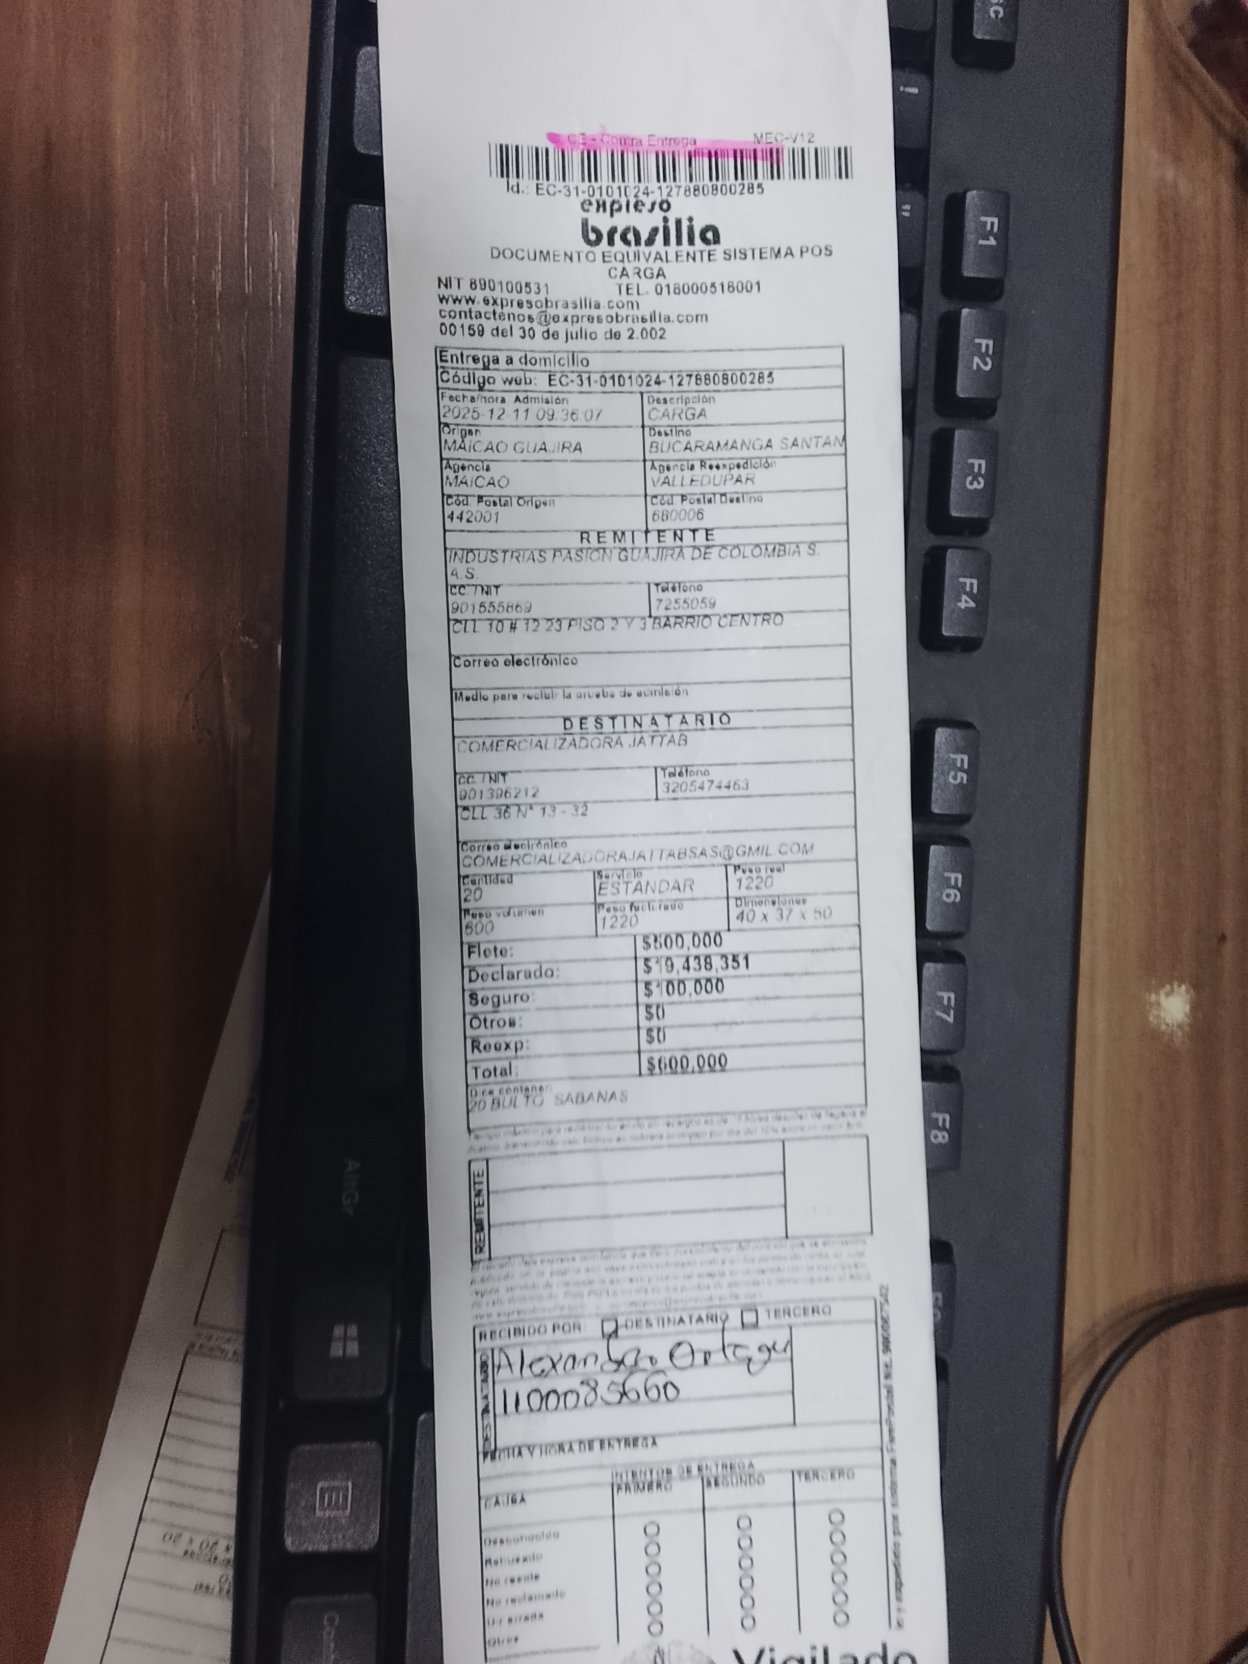 CE - Contra Entrega MEC-V12
Id.: EC-31-0101024-127880800285
expreso
brasilia
DOCUMENTO EQUIVALENTE SISTEMA POS
CARGA
NIT 890100531 TEL. 018000518001
www.expresobrasilia.com
contactenos@expresobrasilla.com
00159 del 30 de julio de 2.002
Entrega a domicilio
Código web: EC-31-0101024-127880800285
Fecha/hora Admisión Descripción
2025-12-11 09:36:07 CARGA
Origen Destino
MAICAO GUAJIRA BUCARAMANGA SANTAN
Agencia Agencia Reexpedición
MAICAO VALLEDUPAR
Cód. Postal Origen Cód. Postal Destino
442001 680006
REMITENTE
INDUSTRIAS PASION GUAJIRA DE COLOMBIA S.
A.S.
CC. / NIT Teléfono
901555869 7255059
CLL 10 # 12 23 PISO 2 Y 3 BARRIO CENTRO
Correo electrónico
Medio para recibir la prueba de admisión
DESTINATARIO
COMERCIALIZADORA JATTAB
CC. / NIT Teléfono
901396212 3205474463
CLL 36 N° 13 - 32
Correo electrónico
COMERCIALIZADORAJATTABSAS@GMIL.COM
Cantidad Servicio Peso real
20 ESTANDAR 1220
Peso volumen Peso facturado Dimensiones
600 1220 40 x 37 x 50
Flete: $500,000
Declarado: $19,438,351
Seguro: $100,000
Otros: $0
Reexp: $0
Total: $600,000
Dice contener:
20 BULTO SABANAS
REMITENTE
RECIBIDO POR: DESTINATARIO TERCERO
DESTINATARIO
Alexandra Ortega
1100085660
FECHA Y HORA DE ENTREGA
INTENTOS DE ENTREGA
CAUSA PRIMERO SEGUNDO TERCERO
Desconocido
Rehusado
No reside
No reclamado
Dir errada
Otros
Vigilado
F1
F2
F3
F4
F5
F6
F7
F8
AltGr